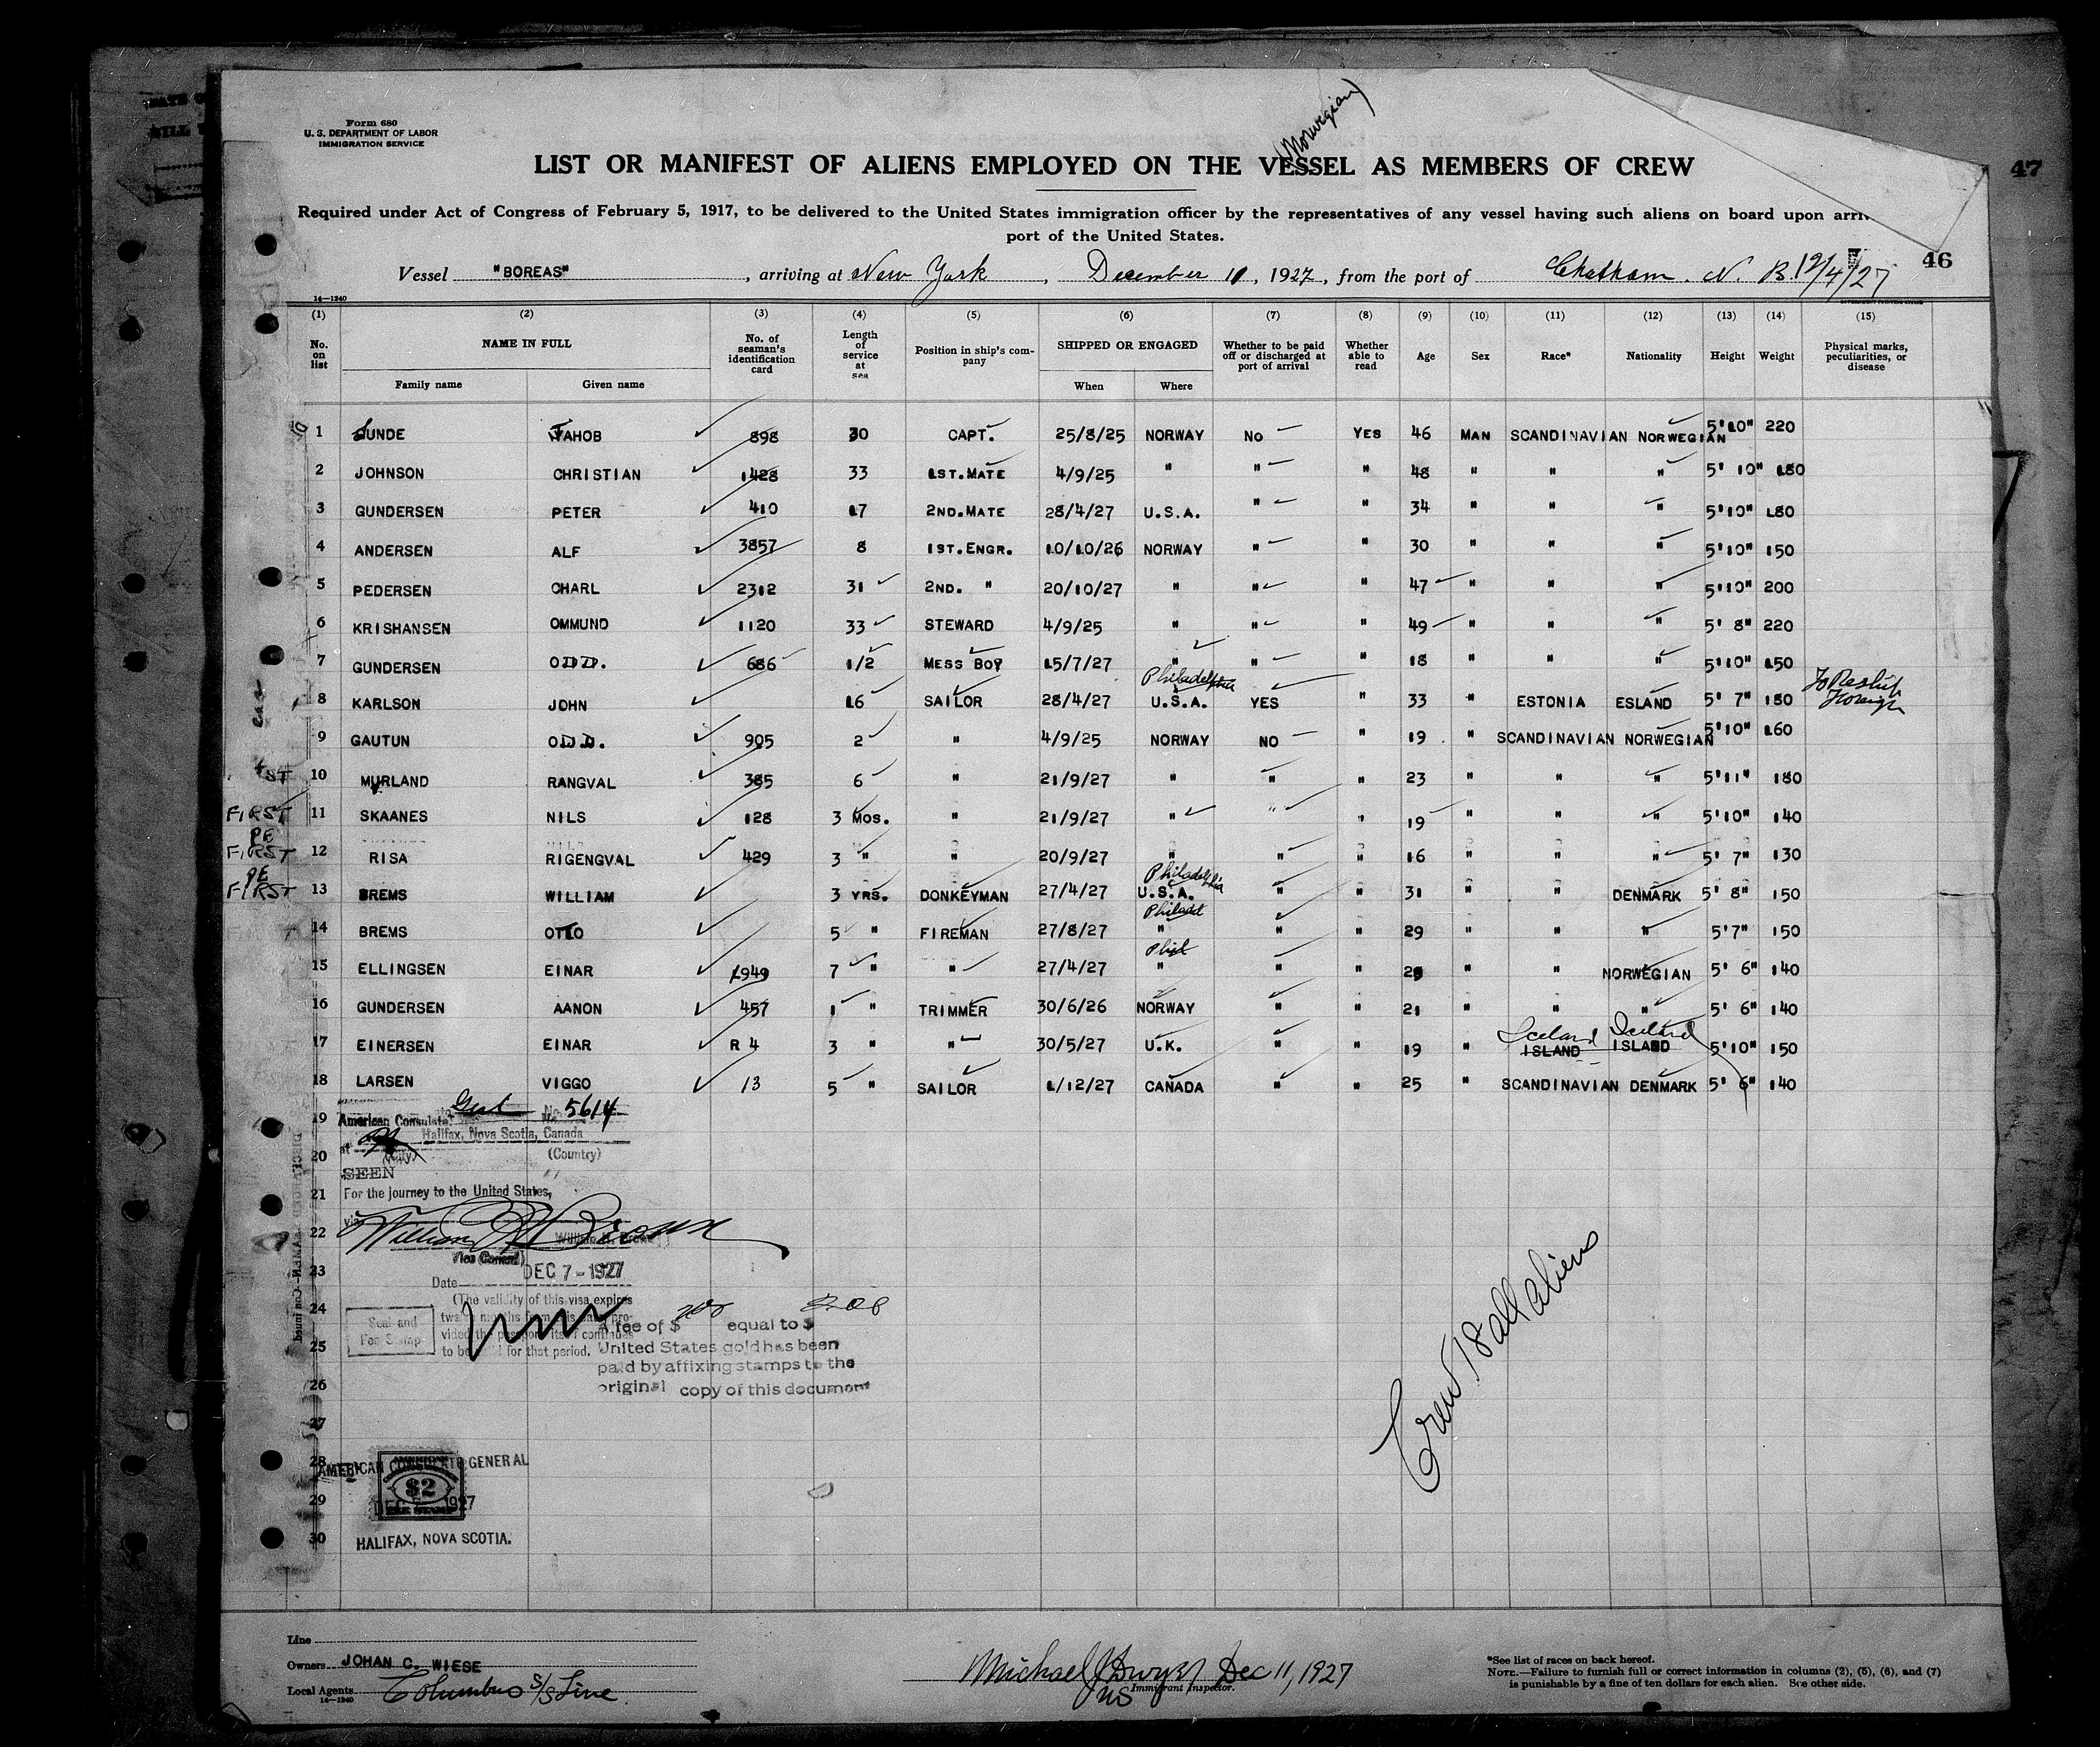 47
Form 680
U. S. DEPARTMENT OF LABOR
IMMIGRATION SERVICE
(Norwegian)
LIST OR MANIFEST OF ALIENS EMPLOYED ON THE VESSEL AS MEMBERS OF CREW
Required under Act of Congress of February 5, 1917, to be delivered to the United States immigration officer by the representatives of any vessel having such aliens on board upon
port of the United States.
46
Vessel "BOREAS", arriving at New York, December 11, 1927, from the port of Chatham. N. B. 12/4/27
14—1240
(1) (2) (3) (4) (5) (6) (7) (8) (9) (10) (11) (12) (13) (14) (15)
No. on list NAME IN FULL Family name Given name No. of seaman's identification card Length of service at sea Position in ship's company SHIPPED OR ENGAGED When Where Whether to be paid off or discharged at port of arrival Whether able to read Age Sex Race* Nationality Height Weight Physical marks, peculiarities, or disease
1 SUNDE JAHOB 898 30 CAPT. 25/8/25 NORWAY NO YES 46 MAN SCANDINAVIAN NORWEGIAN 5'10" 220
2 JOHNSON CHRISTIAN 1428 33 1ST.MATE 4/9/25 " " " 48 " " " 5' 10" 180
3 GUNDERSEN PETER 410 17 2ND.MATE 28/4/27 U.S.A. " " 34 " " " 5'10" 180
4 ANDERSEN ALF 3857 8 1ST.ENGR. 10/10/26 NORWAY " " 30 " " " 5'10" 150
5 PEDERSEN CHARL 2312 31 2ND. " 20/10/27 " " " 47 " " " 5'10" 200
6 KRISHANSEN OMMUND 1120 33 STEWARD 4/9/25 " " " 49 " " " 5' 8" 220
7 GUNDERSEN ODD. 686 1/2 MESS BOY 15/7/27 " " " 18 " " " 5'10" 150
Philadelphia
8 KARLSON JOHN 16 SAILOR 28/4/27 U.S.A. YES " 33 " ESTONIA ESLAND 5' 7" 150 To Reship Foreign
9 GAUTUN ODD. 905 2 " 4/9/25 NORWAY NO " 19 " SCANDINAVIAN NORWEGIAN 5'10" 160
ST 10 MYRLAND RANGVAL 385 6 " 21/9/27 " " " 23 " " " 5'11" 180
FIRST 11 SKAANES NILS 128 3 MOS. " 21/9/27 " " " 19 " " " 5'10" 140
PE
FIRST 12 RISA RIGENGVAL 429 3 " " 20/9/27 " " " 16 " " " 5' 7" 130
PE Philadelphia
FIRST 13 BREMS WILLIAM 3 YRS. DONKEYMAN 27/4/27 U.S.A. " " 31 " " DENMARK 5' 8" 150
Philadel
14 BREMS OTTO 5 " FIREMAN 27/8/27 " " " 29 " " " 5'7" 150
Phil
15 ELLINGSEN EINAR 1949 7 " " 27/4/27 " " " 29 " " NORWEGIAN 5' 6" 140
16 GUNDERSEN AANON 457 1 " TRIMMER 30/6/26 NORWAY " " 21 " " " 5' 6" 140
Iceland Iceland
17 EINERSEN EINAR R 4 3 " " 30/5/27 U.K. " " 19 " ISLAND ISLAND 5'10" 150
18 LARSEN VIGGO 13 5 " SAILOR 1/12/27 CANADA " " 25 " SCANDINAVIAN DENMARK 5' 6" 140
19 American Consulate Genl No. 5614
Halifax, Nova Scotia, Canada
20 at (City) (Country)
SEEN
21 For the journey to the United States,
22 via William Brown
Vice Consul
23 Date DEC 7 - 1927
24 (The validity of this visa expires
twelve months from this date provided the passport itself continues
to be valid for that period.
Seal and
Fee Stamp
25 A fee of $ equal to $
United States gold has been
paid by affixing stamps to the
26 original copy of this document
27
28 AMERICAN CONSULATE GENERAL
$2
29 DEC 1927
30 HALIFAX, NOVA SCOTIA.
Crew 18 all aliens
Line
Owners JOHAN C. WIESE
Local Agents Columbus S/S Line.
14—1240
Michael J Dwyer Dec 11, 1927
Immigrant Inspector.
*See list of races on back hereof.
NOTE.—Failure to furnish full or correct information in columns (2), (5), (6), and (7)
is punishable by a fine of ten dollars for each alien. See other side.